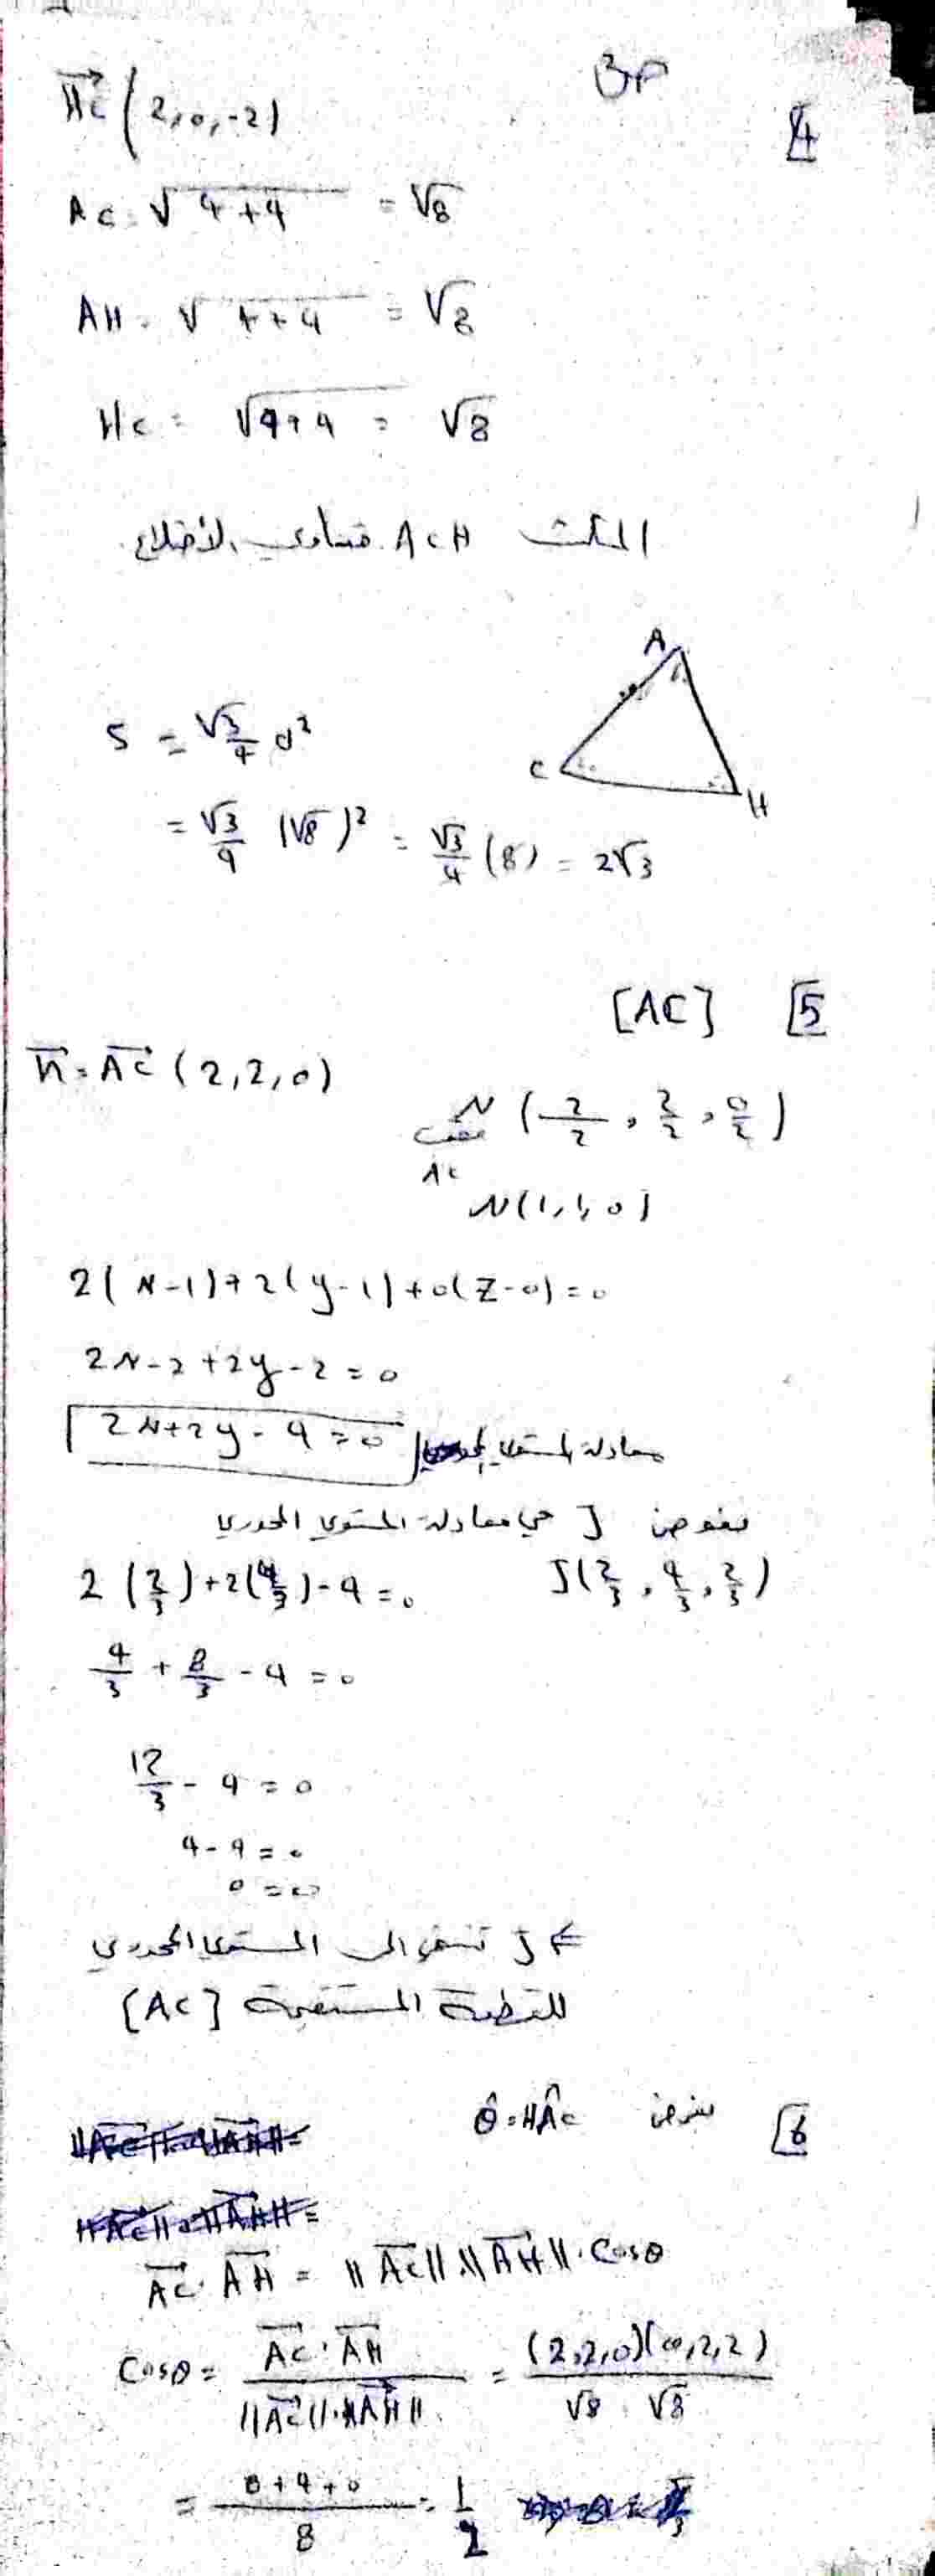 3P
4
HC (2,0,-2)
AC = √4+4 = √8
AH = √4+4 = √8
HC = √4+4 = √8
المثلث ACH متساوي الأضلاع
A
C
H
S = √3/4 d²
= √3/4 (√8)² = √3/4 (8) = 2√3
5 [AC]
n = AC (2,2,0)
N (2/2, 2/2, 0/2)
منتصف
AC
N(1,1,0)
2(x-1)+2(y-1)+0(z-0)=0
2x-2+2y-2=0
2x+2y-4=0 معادلة المستوي
نعوض J في معادلة المستوي المحوري
J(2/3, 4/3, 2/3)
2(2/3)+2(4/3)-4=0
4/3 + 8/3 - 4 = 0
12/3 - 4 = 0
4-4=0
0=0
⇐ J تنتمي الى المستوي المحوري
للقطعة المستقيمة [AC]
6 نفرض θ = HAC
AC · AH = ||AC|| · ||AH|| · Cosθ
Cosθ = AC · AH / ||AC|| · ||AH|| = (2,2,0)(0,2,2) / √8 · √8
= 0+4+0 / 8 = 1/2